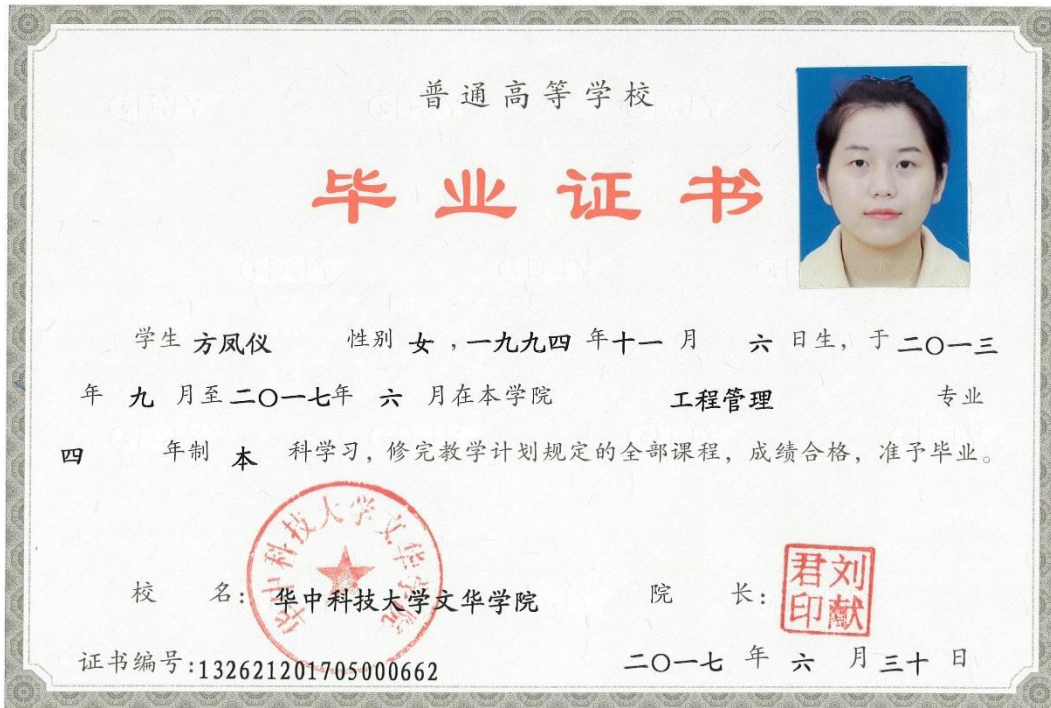 普通高等学校
毕业证书
学生 方凤仪 性别 女 ，一九九四 年 十一 月 六 日生，于 二〇一三
年 九 月至 二〇一七 年 六 月在本学院 工程管理 专业
四 年制 本 科学习，修完教学计划规定的全部课程，成绩合格，准予毕业。
华中科技大学文华学院
校 名：华中科技大学文华学院 院 长：
刘献君印
证书编号:132621201705000662 二〇一七 年 六 月 三十 日